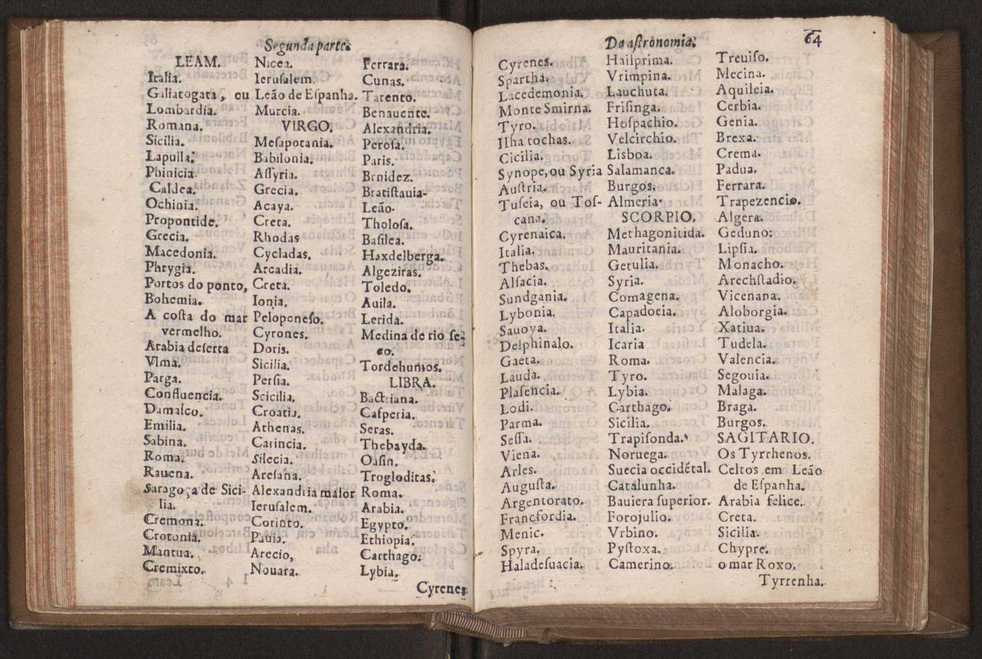 Segunda parte.
LEAM.
Italia.
Galiatogata, ou
Lombardia.
Romana.
Sicilia.
Lapulla.
Phinicia.
Caldea.
Ochinia.
Propontide.
Grecia.
Macedonia.
Phrygia.
Portos do ponto,
Bohemia.
A costa do mar
vermelho.
Arabia deserta
Vlma.
Parga.
Confluencia.
Damasco.
Emilia.
Sabina.
Roma.
Rauena.
Saragoça de Sici-
lia.
Cremona.
Crotonia.
Mantua.
Cremixto.
Nicea.
Ierusalem.
Leão de Espanha.
Murcia.
VIRGO.
Mesapotania.
Babilonia.
Assyria.
Grecia.
Acaya.
Creta.
Rhodas
Cycladas.
Arcadia.
Creta.
Ionia.
Peloponeso.
Cyrones.
Doris.
Sicilia.
Persia.
Scicilia.
Croatia.
Athenas.
Carincia.
Silecia.
Aresana.
Alexandria maior
Ierusalem.
Corinto.
Pauia.
Arecio.
Nouara.
Ferrara.
Cunas.
Tarento.
Benauente.
Alexandria.
Perosa.
Paris.
Brnidez.
Bratistauia-
Leão-
Tholosa.
Basilea.
Haxdelberga.
Algeziras.
Toledo.
Auila.
Lerida.
Medina de rio se-
co.
Tordehumos.
LIBRA.
Bactriana.
Casperia.
Seras.
Thebayda.
Oasin.
Trogloditas.
Roma.
Arabia.
Egypto.
Ethiopia.
Carthago.
Lybia.
Cyrenes
Da astronomia.
64
Cyrenes.
Spartha.
Lacedemonia.
Monte Smirna.
Tyro.
Ilha cochas.
Cicilia.
Synope, ou Syria
Austria.
Tuseia, ou Tos-
cana.
Cyrenaica.
Italia.
Thebas.
Alsacia.
Sundgania.
Lybonia.
Sauoya.
Delphinalo.
Gaeta.
Lauda.
Plasencia.
Lodi.
Parma.
Sessa.
Viena.
Arles.
Augusta.
Argentorato.
Francfordia.
Menic.
Spyra.
Haladesuacia.
Hailprima.
Vrimpina.
Lauchuta.
Frisinga.
Hospachio.
Velcirchio.
Lisboa.
Salamanca.
Burgos.
Almeria.
SCORPIO.
Methagonitida.
Mauritania.
Getulia.
Syria.
Comagena.
Capadocia.
Italia.
Icaria
Roma.
Tyro.
Lybia.
Carthago.
Sicilia.
Trapisonda.
Noruega.
Suecia occidẽtal.
Catalunha.
Bauiera superior.
Forojulio.
Vrbino.
Pystoxa.
Camerino.
Treuiso.
Mecina.
Aquileia.
Cerbia.
Genia.
Brexa.
Crema.
Padua.
Ferrara.
Trapezencio.
Algera.
Geduno:
Lipsia.
Monacho.
Arechstadio.
Vicenana.
Aloborgia.
Xatiua.
Tudela.
Valencia.
Segouia.
Malaga.
Braga.
Burgos.
SAGITARIO.
Os Tyrrhenos.
Celtos em Leão
de Espanha.
Arabia felice.
Creta.
Sicilia.
Chypre.
o mar Roxo.
Tyrrenha.